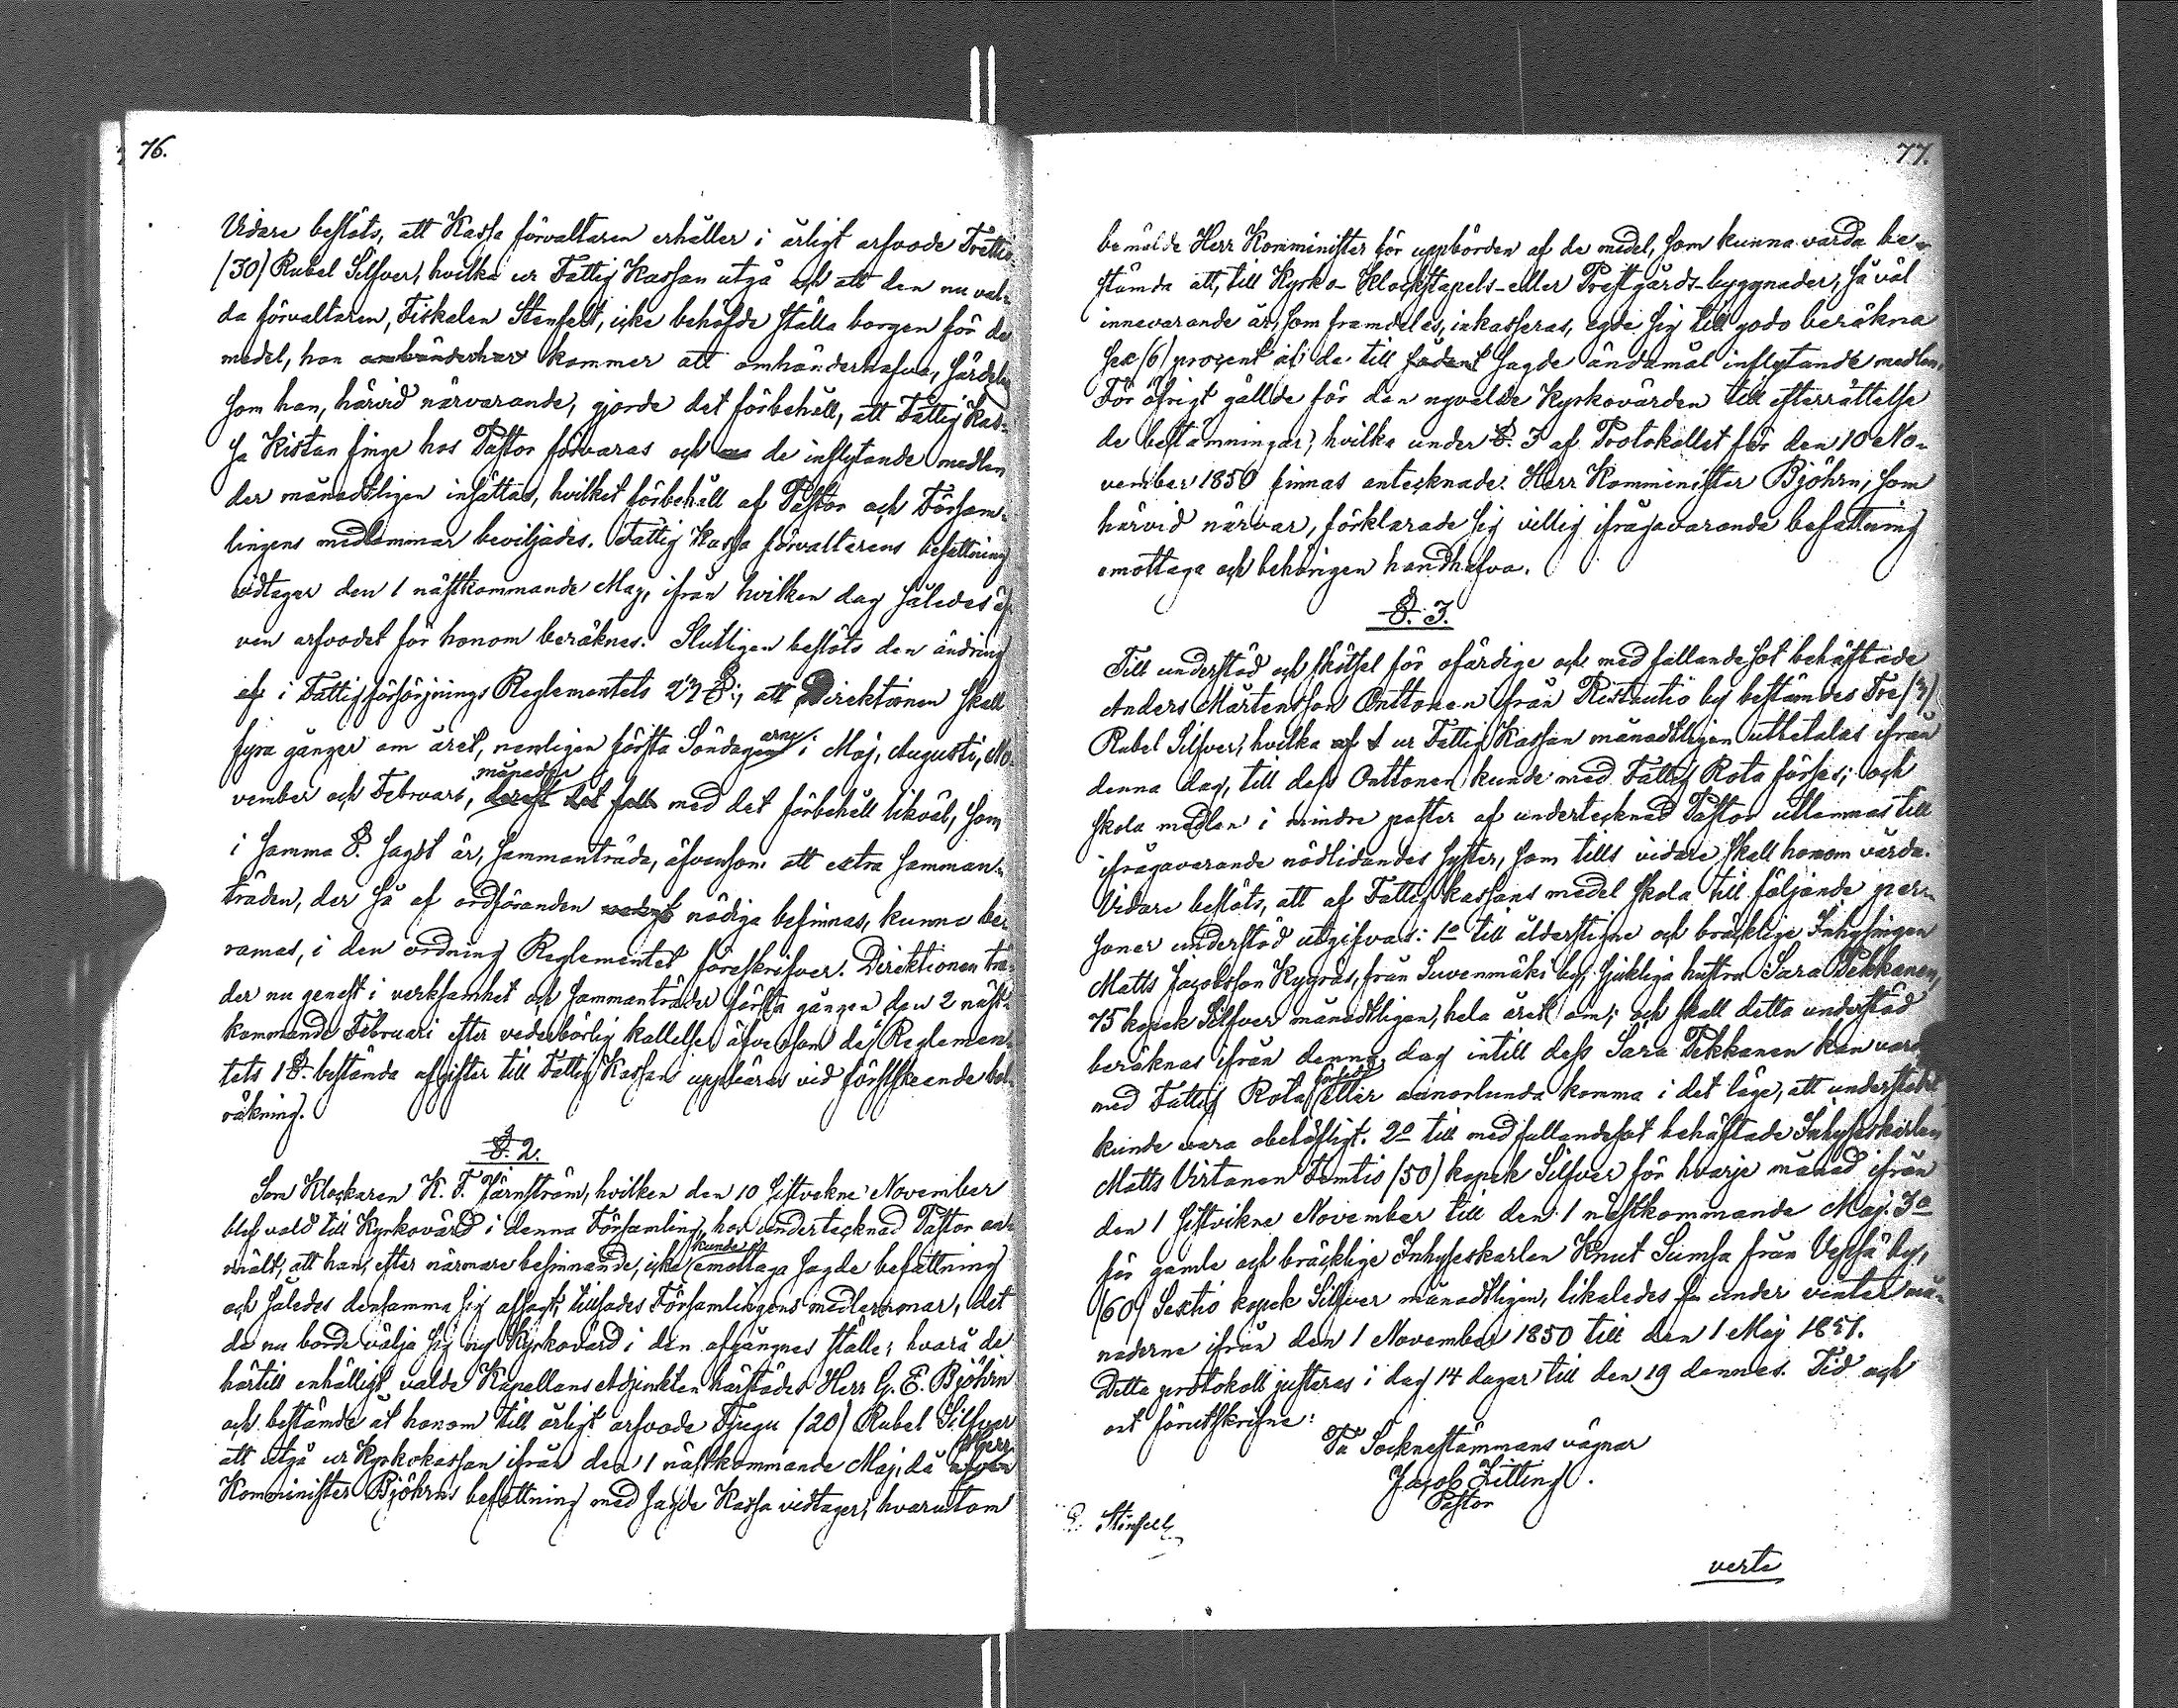 76.
Vidare beslöts, att Kassa förvaltaren erhåller i årligt arfvode Trettio
(30) Rubel Silfver, hvilka ur Fattig Kassan utgå och att den nu val-
da förvaltaren, Fiskalen Stenfelt, icke behöfde ställa borgen för de
medel, han omhänderhar kommer att omhänderhafva, särdeles
som han, härvid närvarande, gjorde det förbehåll, att Fattig Kas-
sa Kistan finge hos Pastor förvaras och de inflytande medlen
der månadtligen insättas, hvilket förbehåll af Pastor och Försam-
lingens medlemmar beviljades. Fattig Kassa förvaltarens befattning
vidtager den 1 nästkommande Maj, ifrån hvilken dag således äf-
ven arfvodet för honom beräknes. Slutligen beslöts den ändring
af i Fattigförsörjnings Reglementets 27 §:, att Direktionen skall
fyra gånger om året, nemligen första Söndagen arne i Maj, Augusti, No-
vember och Februari, månader derest det fall med det förbehåll likväl, som
i samma §. sagdt är, sammanträda, äfvensom att extra samman-
träden, der så af ordföranden nödiga befinnas, kunna be-
ramas, i den ordning Reglementet föreskrifver. Direktionen trä-
der nu genast i verksamhet och sammanträder första gången den 2 näst-
kommande Februari efter vederbörlig kallelse äfvensom de i Reglemen-
tets 1 §. bestämda afgifter till Fattig Kassans uppbäras vid förstskeende bok-
räkning.
§. 2.
Som Klockaren K. F. Järnström, hvilken den 10 sistvekne November
blef vald till Kyrkovärd i denna Församling, hos undertecknad Pastor an-
mält, att han, efter närmare besinnande, icke kunde emottaga sagde befattning
och således densamma sig afsagt; tillsades Församlingens medlemmar, det
de nu borde välja sig ny Kyrkovärd i den afgångnes ställe; hvarå de
härtill enhälligt valde Kapellans Adjunkten härstädes Herr G. E. Björhn
och bestämde åt honom till årligt arfvode Tjugu (20) Rubel Silfver
att utgå ur Kyrkokassan ifrån den 1 nästkommande Maj, då Herr
Komminister Björhns befattning med sagde Kassa vidtager; hvarutom
77.
bemälde Herr Komminister för uppbörden af de medel, som kunna varda be-
stämda att, till Kyrko- Klockstapels- eller Prestgårds-byggnader, så väl
innevarande år, som framdeles, inkasseras, egde sig till godo beräkna
sex (6) procent af de till sådant sagde ändamål inflytande medlen.
För öfrigt gällde för den nyvalde Kyrkovärden till efterrättelse
de bestämningar, hvilka under §. 3 af Protokollet för den 10 No-
vember 1850 finnas antecknade. Herr Komminister Björhn, som
härvid närvar, förklarade sig villig ifrågavarande befattning
emottaga och behörigen handhafva.
§. 3.
Till understöd och skötsel för ofärdige och med fallandesot behäftade
Anders Mårtensson Onttonen ifrån Ristautio by bestämdes Tre (3)
Rubel Silfver, hvilka af ur Fattig Kassan månadtligen utbetalas ifrån
denna dag, till dess Onttonen kunde med Fattig Rota förses; och
skola medlen i mindre poster af undertecknad Pastor utlemnas till
ifrågavarande nödlidandes syster, som tills vidare skall honom vårda.
Vidare beslöts, att af Fattig kassans medel skola till följande per-
soner understöd utgifvas: 1o till ålderstigne och bräcklige Inhysingen
Matts Jacobsson Kyyräs, från Suvenmäki by, sjukliga hustru Sara Pekkanen,
75 kopek Silfver månadtligen, hela året om; och skall detta understöd
beräknas ifrån denna dag intill dess Sara Pekkanen kan varda
med Fattig Rota försedd eller annorlunda komma i det läge, att understödet
kunde vara obehöfligt. 2o till med fallandesot behäftade Inhyseskarlen
Matts Virtanen Femtio (50) kopek Silfver för hvarje månad ifrån
den 1 sistvikne November till den 1 nästkommande Maj. 3o
för gamle och bräcklige Inhyseskarlen Knut Sumsa från Vepsä by,
(60) Sextio kopek Silfver månadtligen, likaledes under vinter må-
naderne ifrån den 1 November 1850 till den 1 Maj 1851.
Detta protokoll justeras i dag 14 dagar till den 19 dennes. Tid och
ort förutskrifne:
På Sockneståmmans vägnar
Jacob Zitting.
Pastor
Stenfelt
verte